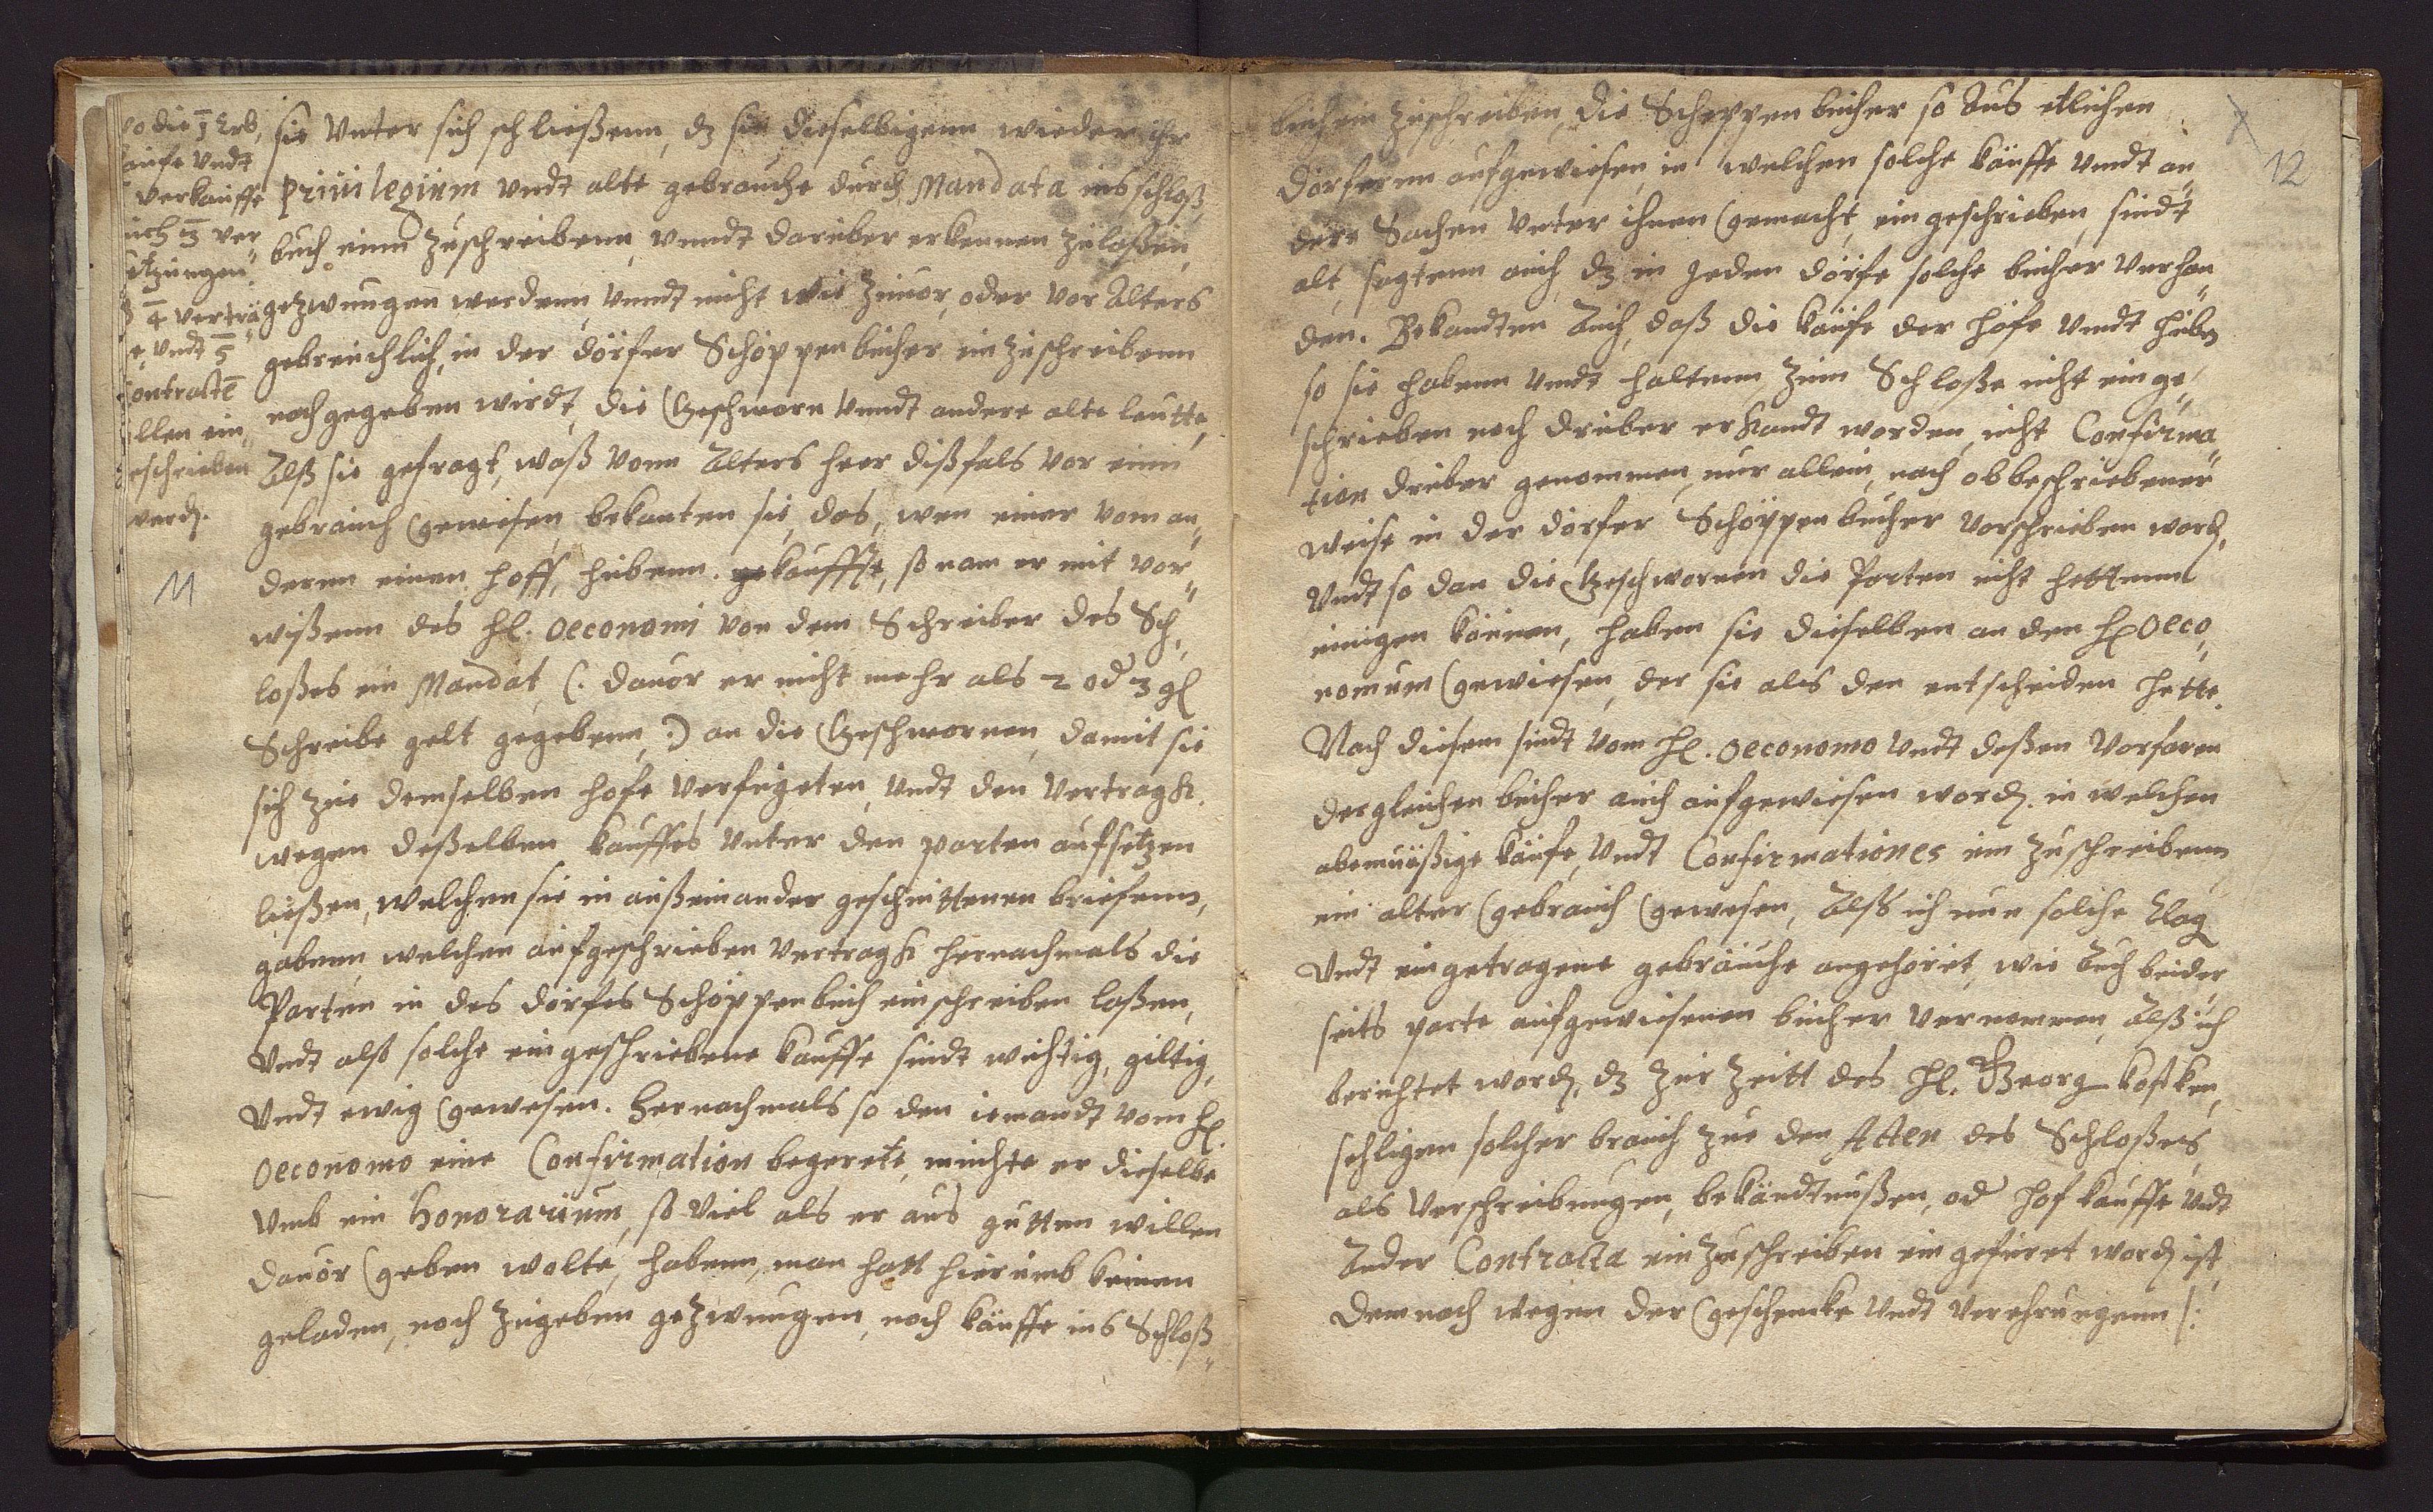 wo die 1 Erb,
kaufe vndt
verkauffe
auch 3 ver
setzungen
4 verträ
ge, vndt 5
Contracte
sollen ein
geschrieben
werdn.
11
sie Vnter sich schließenn, dz sie dieselbigenn wieder ihr
Priuilegium vndt alte gebrauche durch Mandata ins schloß
buch einn zuschreibenn, vnndt darüber erkennen zulaßen,
gezwungen werdenn, vnndt nicht wie zuuor, oder vor Alters
gebreuchlich, in der dörfer Schöppenbücher ein zuschreibenn
nachgegeben wirdt, die Geschworn vnndt andere alte leutte,
Alß sie gefragt, waß vonn Alters heer dißfals vor einn
gebrauch gewesen, bekanten sie, das, wen einer vom an„
dernn einen hoff, hubenn. kauffte, so nam er mit vor„
wißenn des Hl. Oeconomi von dem Schreiber des Sch„
loßes ein Mandat, (: dauor er nicht mehr als 2 od 3 gl
Schreibe gelt gegebenn, :) an die Geschwornen, damit sie
sich zue demselben hofe verfügeten, vndt den vertragk.
wegen deßelben kauffes vnter den parten aufsetzen
ließen, welchen sie in außeinander geschnittenen briefenn,
gabenn, welchen aufgeschrieben vertragk hernachmals die
Parten in des dorfes Schöppenbuch einschreiben laßen,
Vndt alß solche eingeschriebene kauffe sindt wichtig, giltig,
Vndt ewig gewesen. Hernachmals so den iemandt vom H.
Oeconomo eine Confirmation begerete, muchte er dieselbe
Vmb ein Honorarium, so viel als er aus gutten willen
dauor geben wolte, habenn, man hatt hierumb keinen
geladen, noch zugeben gezwungen, noch käuffe ins Schloß„
12
buch ein zuschreiben, die Scheppen bücher so Aus etlichen
dörfernn aufgewiesen, in welchen solche käuffe vnndt an„
dere Sachen vnter ihnen gemacht, ein geschrieben, sindt
alt, sagtenn auch, dz in Jeden dörfe solche bücher verhan„
den. Bekandten Auch, daß die käufe der höfe vndt huben
so sie habenn vndt haltenn, zum Schloße nicht einge„
schrieben noch drüber erkandt worden, nicht Confirma„
tion drüber genommen, nur allein, nach obbeschriebener
weise in der dörfer Schöppenbücher verschrieben word,
Vndt so dan die Geschwornen die Parten nicht hettenn
einigen können, haben sie dieselben an den H Oeco„
nomum gewiesen, der sie als den entscheiden hette.
Nach diesem sindt vom Hl. Oeconomo vndt deßen vorfaren
dergleichen bücher auch aufgewiesen wordn. in welchen
käufe, vndt Confirmationes ein zuschreibenn,
ein alter gebrauch gewesen, Alß ich nun solche klag
Vndt eingetragene gebräuche angehöret, wie Auch beider
seits parte aufgewiesenen bücher vernommen, Alß ich
berichtet wordn, dz zur Zeitt des Hl. Georg kostken,
sehligen solcher brauch zue den Acten des Schloßes,
als verschreibungen, bekändtnußen, od hof kauffe vndt
Ander Contracta ein zuschreiben eingefüret wordn ist,
Demnach wegen der geschencke vndt verehrungenn /: